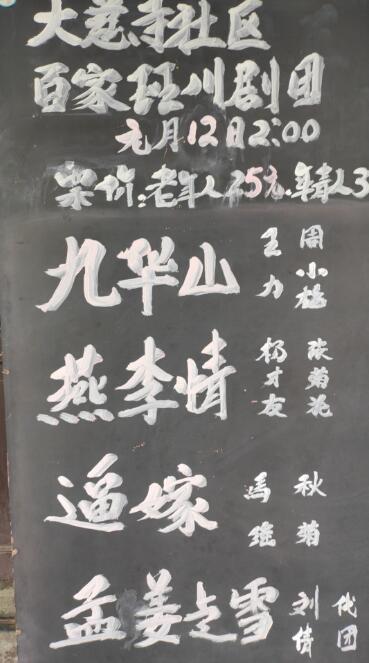 大慈寺社区
百家班川剧团
元月12日2:00
票价:老年人25元.年青人3
九华山 王力 周小
燕李情 杨才友 张菊花
逼嫁 马瑶 秋菊
孟姜走雪 刘倩 代团